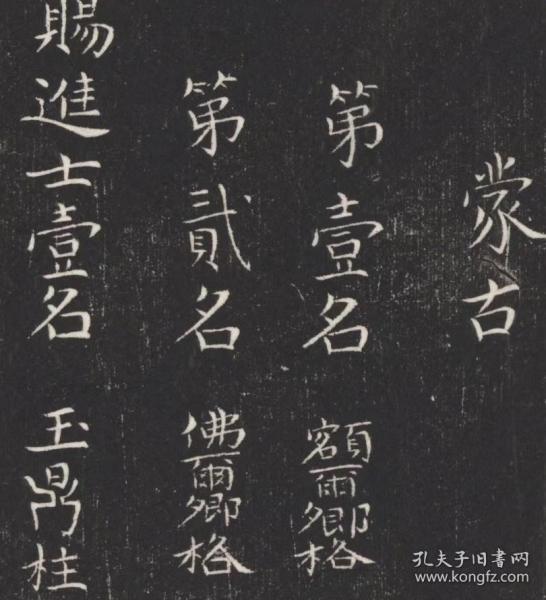 蒙古
第壹名 額爾卿格
第貳名 佛爾卿格
賜進士壹名 王鼎柱
孔夫子旧书网
www.kongfz.com